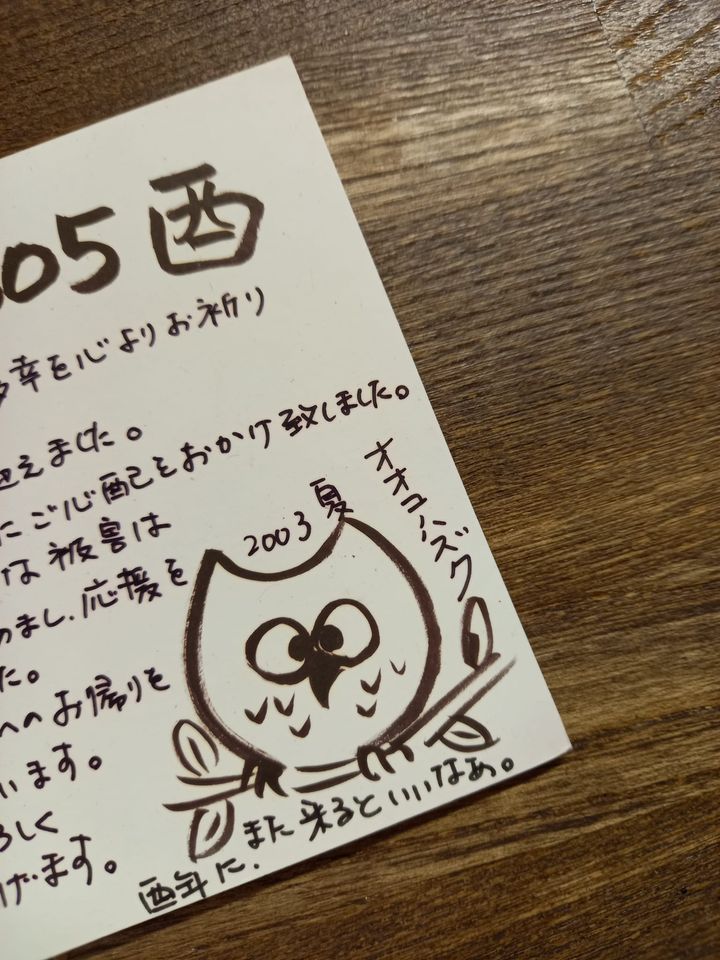 05 酉
幸を心よりお祈り
迎えました。
にご心配をおかけ致しました。
な被害は
まし、応援を
た。
へのお帰りを
います。
ろしく
げます。
2003 夏
オオコノハズク
酉年に、また来るといいなぁ。